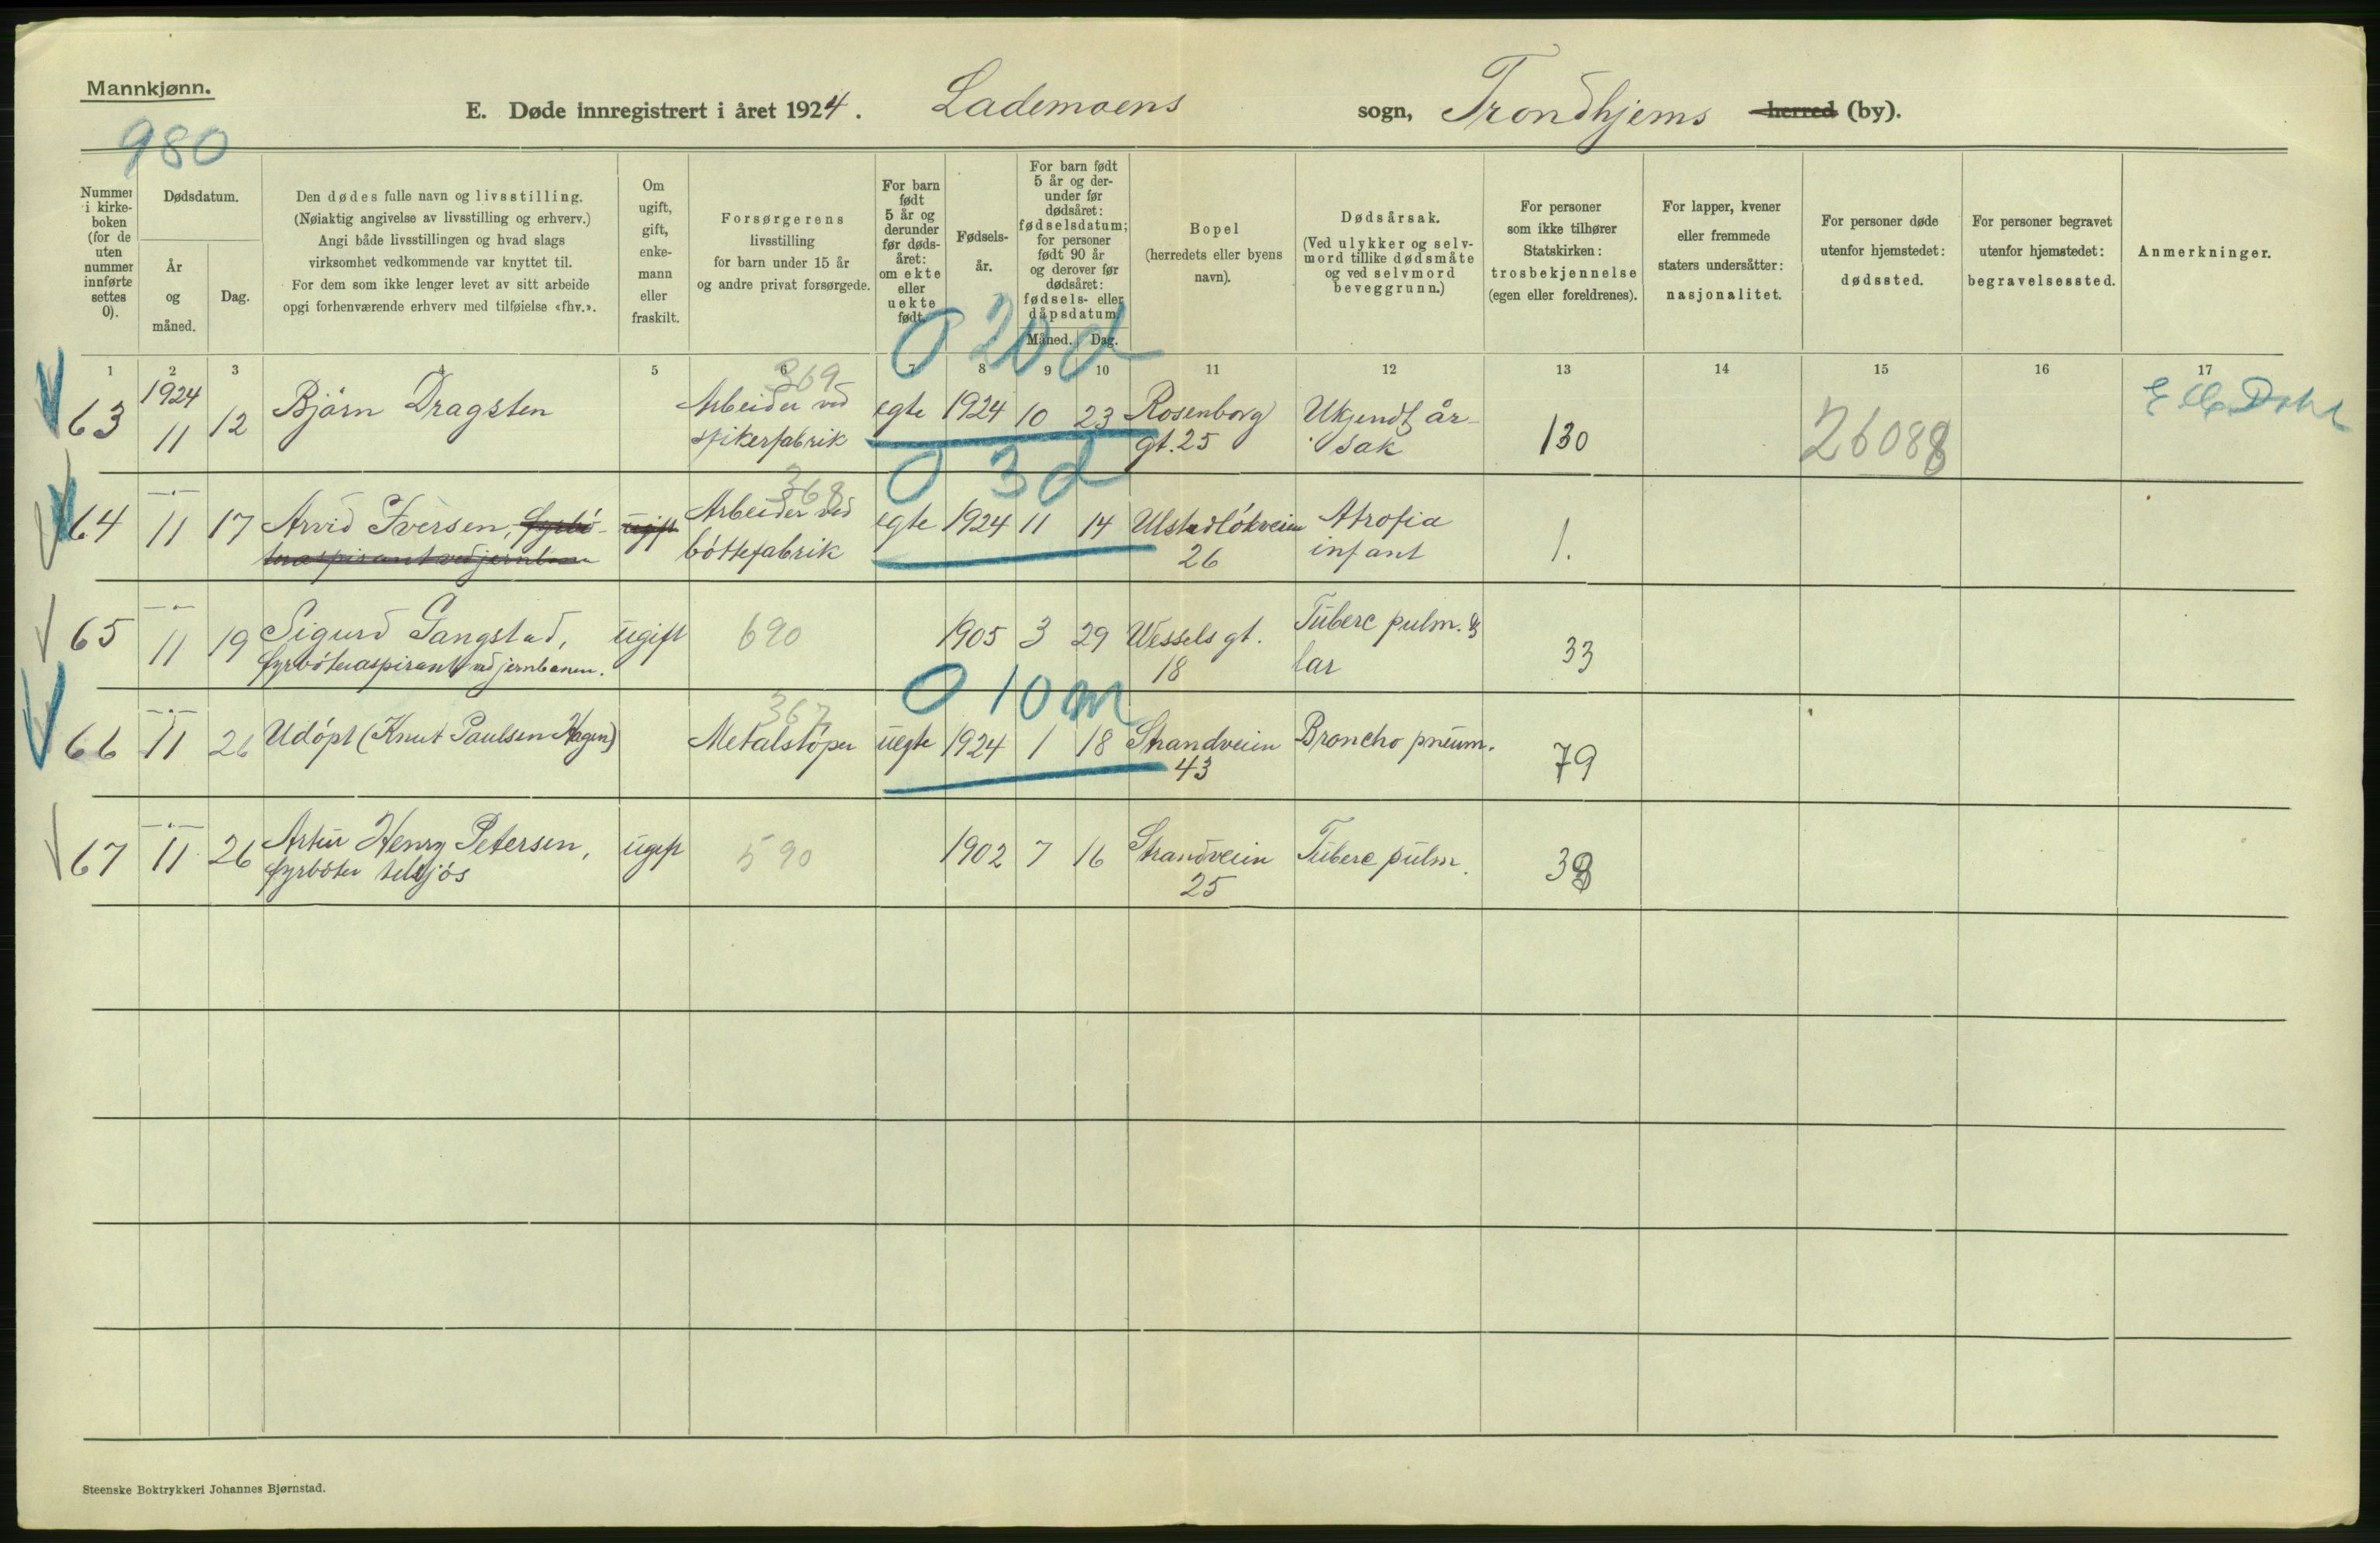 Mannkjønn.
E. Døde innregistrert i året 1924. Lademoens sogn, Trondhjems herred (by).
980
Nummer i kirkeboken (for de uten nummer innførte settes 0).
Dødsdatum.
År og måned.
Dag.
Den dødes fulle navn og livsstilling.
(Nøiaktig angivelse av livsstilling og erhverv.)
Angi både livsstillingen og hvad slags
virksomhet vedkommende var knyttet til.
For dem som ikke lenger levet av sitt arbeide
opgi forhenværende erhverv med tilføielse «fhv.».
Om ugift, gift, enkemann eller fraskilt.
Forsørgerens
livsstilling
for barn under 15 år
og andre privat forsørgede.
For barn født 5 år og derunder før dødsåret: om ekte eller uekte født.
Fødselsår.
For barn født 5 år og derunder før dødsåret: fødselsdatum; for personer født 90 år og derover før dødsåret: fødsels- eller dåpsdatum.
Måned. Dag.
Bopel
(herredets eller byens
navn).
Dødsårsak.
(Ved ulykker og selvmord tillike dødsmåte og ved selvmord beveggrunn.)
For personer
som ikke tilhører
Statskirken:
trosbekjennelse
(egen eller foreldrenes).
For lapper, kvener
eller fremmede
staters undersåtter:
nasjonalitet.
For personer døde
utenfor hjemstedet:
dødssted.
For personer begravet
utenfor hjemstedet:
begravelsessted.
Anmerkninger.
1 2 3 4 5 6 7 8 9 10 11 12 13 14 15 16 17
0 20 d
369
63 1924 11 12 Bjørn Dragsten Arbeider ved spikerfabrik egte 1924 10 23 Rosenborg gt. 25 Ukjendt årsak 130 26088
0 3 d
368
64 —"— 11 17 Arvid Iversen, fyrbøteraspirant ved jernbanen ugift Arbeider ved bøttefabrik egte 1924 11 14 Ulstadløkveien 26 Atrofia infant 1.
65 —"— 11 19 Sigurd Gangstad, fyrbøteraspirant ved jernbanen. ugift 690 1905 3 29 Wessels gt. 18 Tuberc pulm. & lar 33
0 10 m
367
66 —"— 11 26 Udøpt (Knut Paulsen Hagen) Metalstøper uegte 1924 1 18 Strandveien 43 Broncho pneum. 79
67 —"— 11 26 Artur Henry Petersen, fyrbøter tilsjøs ugift 590 1902 7 16 Strandveien 25 Tuberc pulm. 33
Steenske Boktrykkeri Johannes Bjørnstad.